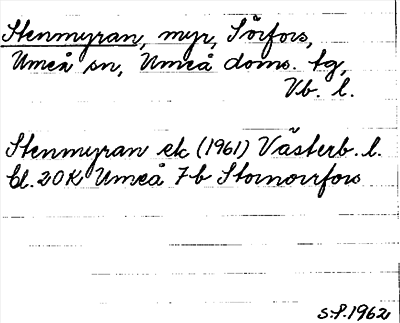 Stenmyran, myr, Sörfors,
Umeå sn, Umeå doms. tg,
Vb. l.
Stenmyran ek (1961) Västerb. l.
bl. 20K Umeå 7b Stornorrfors
S.P.1962